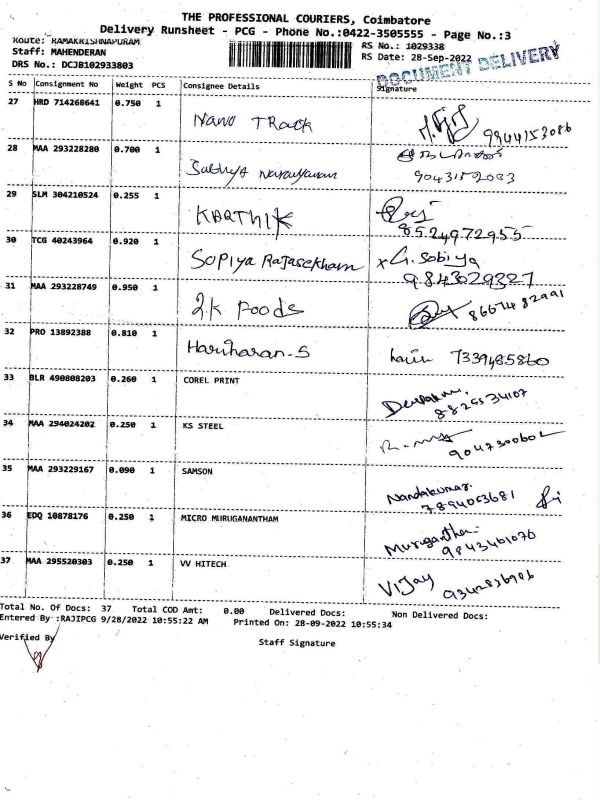 THE PROFESSIONAL COURIERS, Coimbatore
Delivery Runsheet - PCG - Phone No.:0422-3505555 - Page No.:3
Route: RAMAKRISHNAPURAM
Staff: MAHENDERAN
DRS No.: DCJB102933803
RS No.: 1029338
RS Date: 28-Sep-2022
DOCUMENT DELIVERY
S No Consignment No Weight PCS Consignee Details Signature
27 HRD 714268641 0.750 1 Nano Track 9944153086
28 MAA 293228280 0.700 1 Narayanan
29 SLM 304210524 0.255 1 KARTHIK 8524972955
30 TCG 40243964 0.920 1 Sopiya Rajasekham x G. Sobiya
9843029327
31 MAA 293228749 0.950 1 2k Foods 8667482991
32 PRO 13892388 0.810 1 Hariharan.S 7339485860
33 BLR 490808203 0.260 1 COREL PRINT
8825534107
34 MAA 294024202 0.250 1 KS STEEL
9047300602
35 MAA 293229167 0.090 1 SAMSON Nandakumar.
7894053681
36 EDQ 10878176 0.250 1 MICRO MURUGANANTHAM
9843461076
37 MAA 295520303 0.250 1 VV HITECH Vijay 9342836986
Total No. Of Docs: 37 Total COD Amt: 0.00 Delivered Docs: Non Delivered Docs:
Entered By :RAJIPCG 9/28/2022 10:55:22 AM Printed On: 28-09-2022 10:55:34
Verified By
Staff Signature